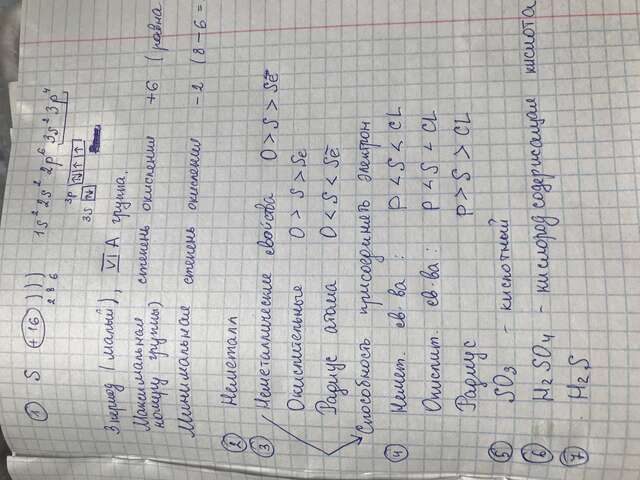 ① S +16 ) ) ) 1s² 2s² 2p⁶ 3s² 3p⁴
2 8 6
3p ↑↓ ↑ ↑
3s ↑↓
3 период (малый), VI A группа.
Максимальная степень окисления +6 (равна
номеру группы)
Минимальная степень окисления -2 (8-6=
② Неметалл
③ Неметаллические свойства O > S > Se
Окислительные O > S > Se
Радиус атома O < S < Se
Способность присоединять электрон
④ Немет. св-ва: P < S < CL
Окислит. св-ва: P < S < CL
Радиус P > S > CL
⑤ SO₃ - кислотный
⑥ H₂SO₄ - кислородсодержащая кислота
⑦ H₂S